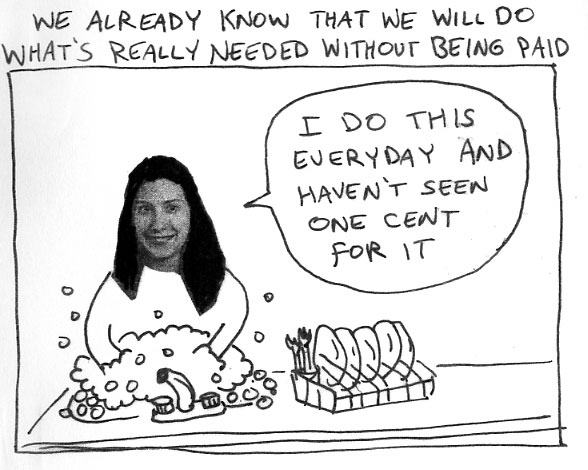 WE ALREADY KNOW THAT WE WILL DO
WHAT'S REALLY NEEDED WITHOUT BEING PAID
I DO THIS
EVERYDAY AND
HAVEN'T SEEN
ONE CENT
FOR IT